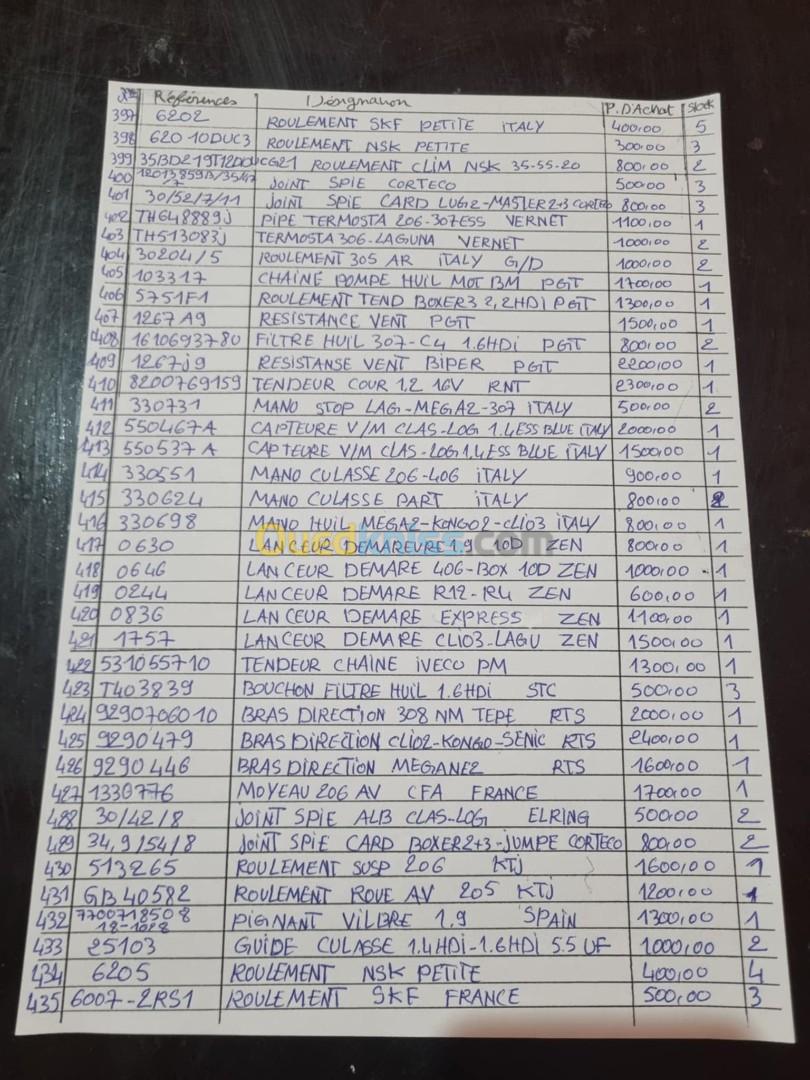 N° Références Désignation P.D'Achat Stock
397 6202 ROULEMENT SKF PETITE ITALY 400,00 5
398 620 10DUC3 ROULEMENT NSK PETITE 300,00 3
399 35BD219T12DDUCG21 ROULEMENT CLIM NSK 35-55-20 800,00 2
400 12013859B/35/47/7 JOINT SPIE CORTECO 500,00 3
401 30/52/7/11 JOINT SPIE CARD LUG2-MASTER2+3 CORTECO 800,00 3
402 TH648889J PIPE TERMOSTA 206-307ESS VERNET 1100,00 1
403 TH513083J TERMOSTA 306-LAGUNA VERNET 1000,00 2
404 30204/5 ROULEMENT 305 AR ITALY G/D 1000,00 2
405 103317 CHAINE POMPE HUIL MOT BM PGT 1700,00 1
406 5751F1 ROULEMENT TEND BOXER3 2,2HDI PGT 1300,00 1
407 1267A9 RESISTANCE VENT PGT 1500,00 1
408 1610693780 FILTRE HUIL 307-C4 1.6HDi PGT 800,00 2
409 1267J9 RESISTANSE VENT BIPER PGT 2200,00 1
410 8200769159 TENDEUR COUR 1,2 16V RNT 2300,00 1
411 330731 MANO STOP LAG1-MEGA2-307 ITALY 500,00 2
412 550467A CAPTEURE V/M CLAS-LOG 1.4ESS BLUE ITALY 2000,00 1
413 550537A CAPTEURE V/M CLAS-LOG 1,4ESS BLUE ITALY 1500,00 1
414 330551 MANO CULASSE 206-406 ITALY 900,00 1
415 330624 MANO CULASSE PART ITALY 800,00 2
416 330698 MANO HUIL MEGA2-KONGO2-CLIO3 ITALY 800,00 1
417 0630 LANCEUR DEMAREURE 1,9 10D ZEN 800,00 1
418 0646 LANCEUR DEMARE 406-BOX 10D ZEN 1000,00 1
419 0244 LANCEUR DEMARE R12-R4 ZEN 600,00 1
420 0836 LANCEUR DEMARE EXPRESS ZEN 1100,00 1
421 1757 LANCEUR DEMARE CLIO3-LAGU ZEN 1500,00 1
422 531055710 TENDEUR CHAINE IVECO PM 1300,00 1
423 T403839 BOUCHON FILTRE HUIL 1.6HDi STC 500,00 3
424 9290706010 BRAS DIRECTION 308 NM TEPE RTS 2000,00 1
425 9290479 BRAS DIRECTION CLIO2-KONGO-SENIC RTS 2400,00 1
426 9290446 BRAS DIRECTION MEGANE2 RTS 1600,00 1
427 1330776 MOYEAU 206 AV CFA FRANCE 1700,00 1
428 30/42/8 JOINT SPIE ALB CLAS-LOG ELRING 500,00 2
429 34,9/54/8 JOINT SPIE CARD BOXER2+3-JUMPE CORTECO 800,00 2
430 513265 ROULEMENT SUSP 206 KTJ 1600,00 1
431 GB40582 ROULEMENT ROUE AV 205 KTJ 1200,00 1
432 7700718508 18-1028 PIGNANT VILBRE 1,9 SPAIN 1300,00 1
433 25103 GUIDE CULASSE 1.4HDI-1.6HDI 5.5 UF 1000,00 2
434 6205 ROULEMENT NSK PETITE 400,00 4
435 6007-2RS1 ROULEMENT SKF FRANCE 500,00 3
Ouedkniss.com